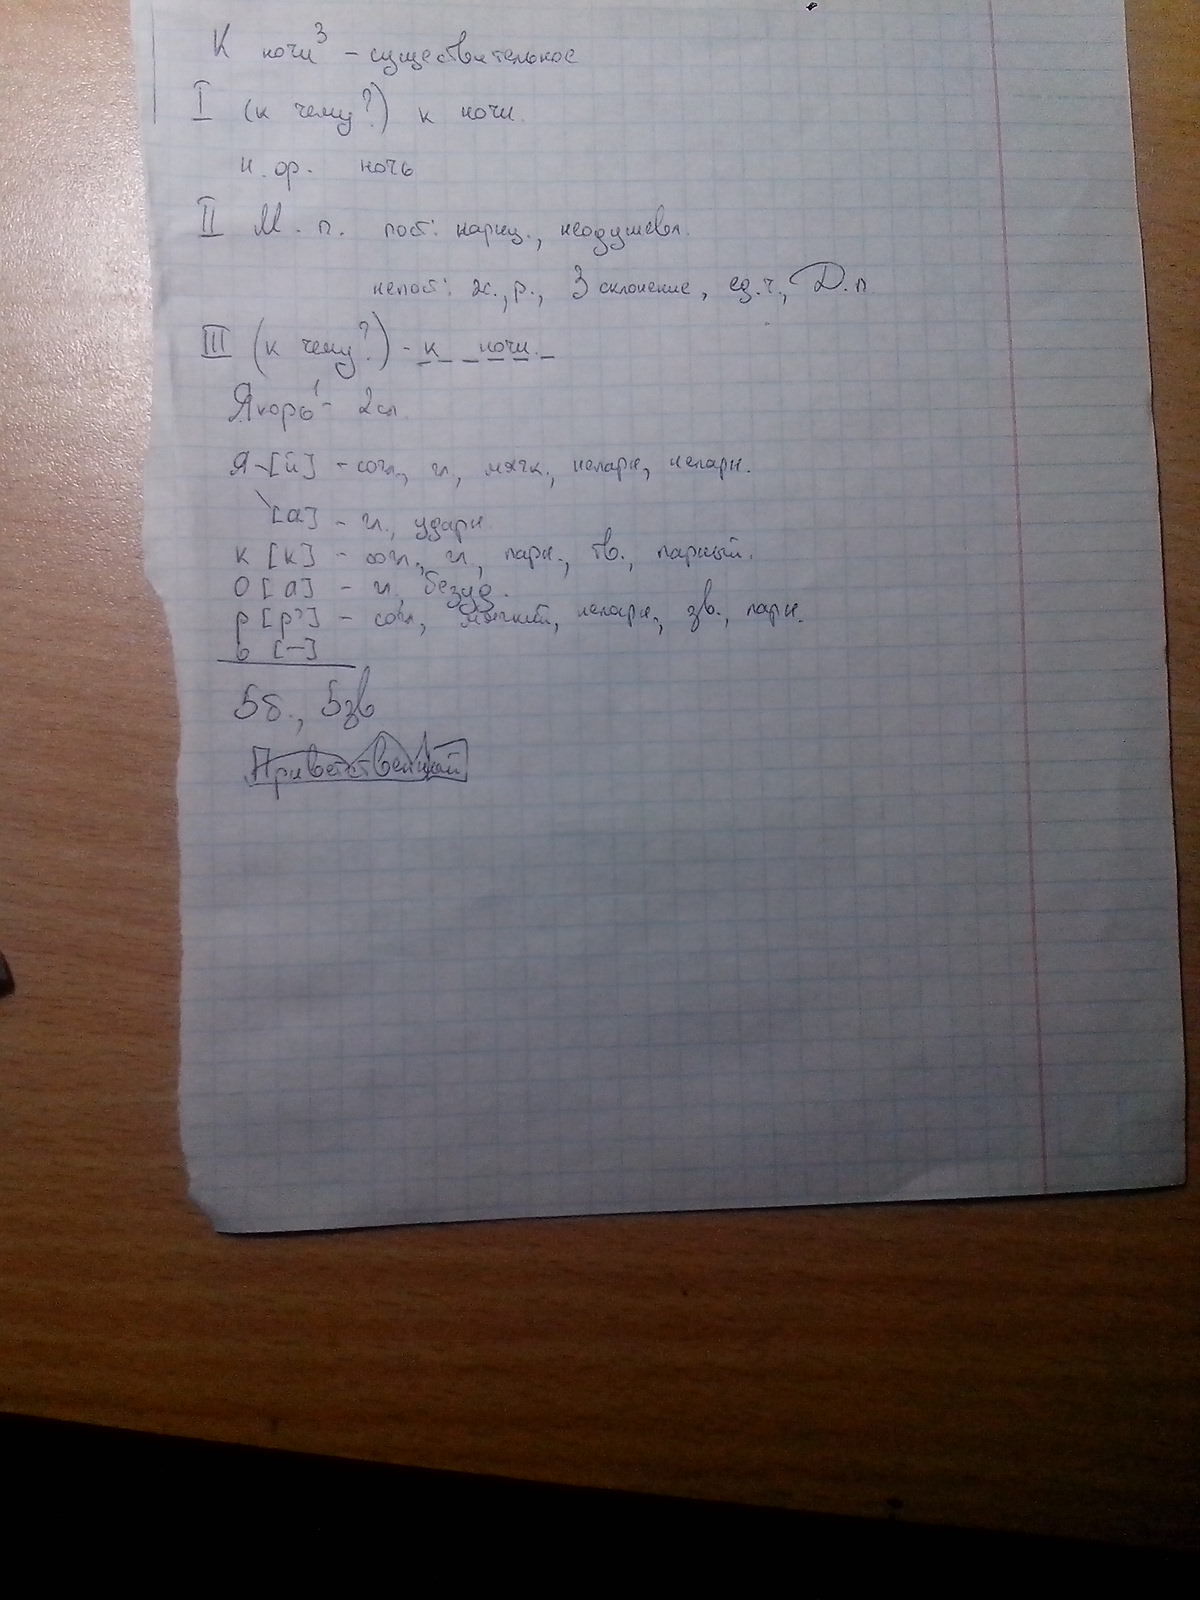 К ночи³ – существительное
I (к чему?) к ночи.
н. ф. ночь
II М. п. пост: нариц., неодушевл.
непост: ж., р., 3 склонение, ед. ч., Д. п
III (к чему?) - к ночи.
Якорь¹ - 2 сл
Я - [й] - согл., гл, мягк., непарн, непарн.
[а] - гл., ударн.
к [к] - согл., гл., парн., тв., парный.
о [а] - гл., безуд.
р [р'] - согл, мягкий, непарн, зв., парн.
ь [–]
5 б., 5 зв
Приветственный